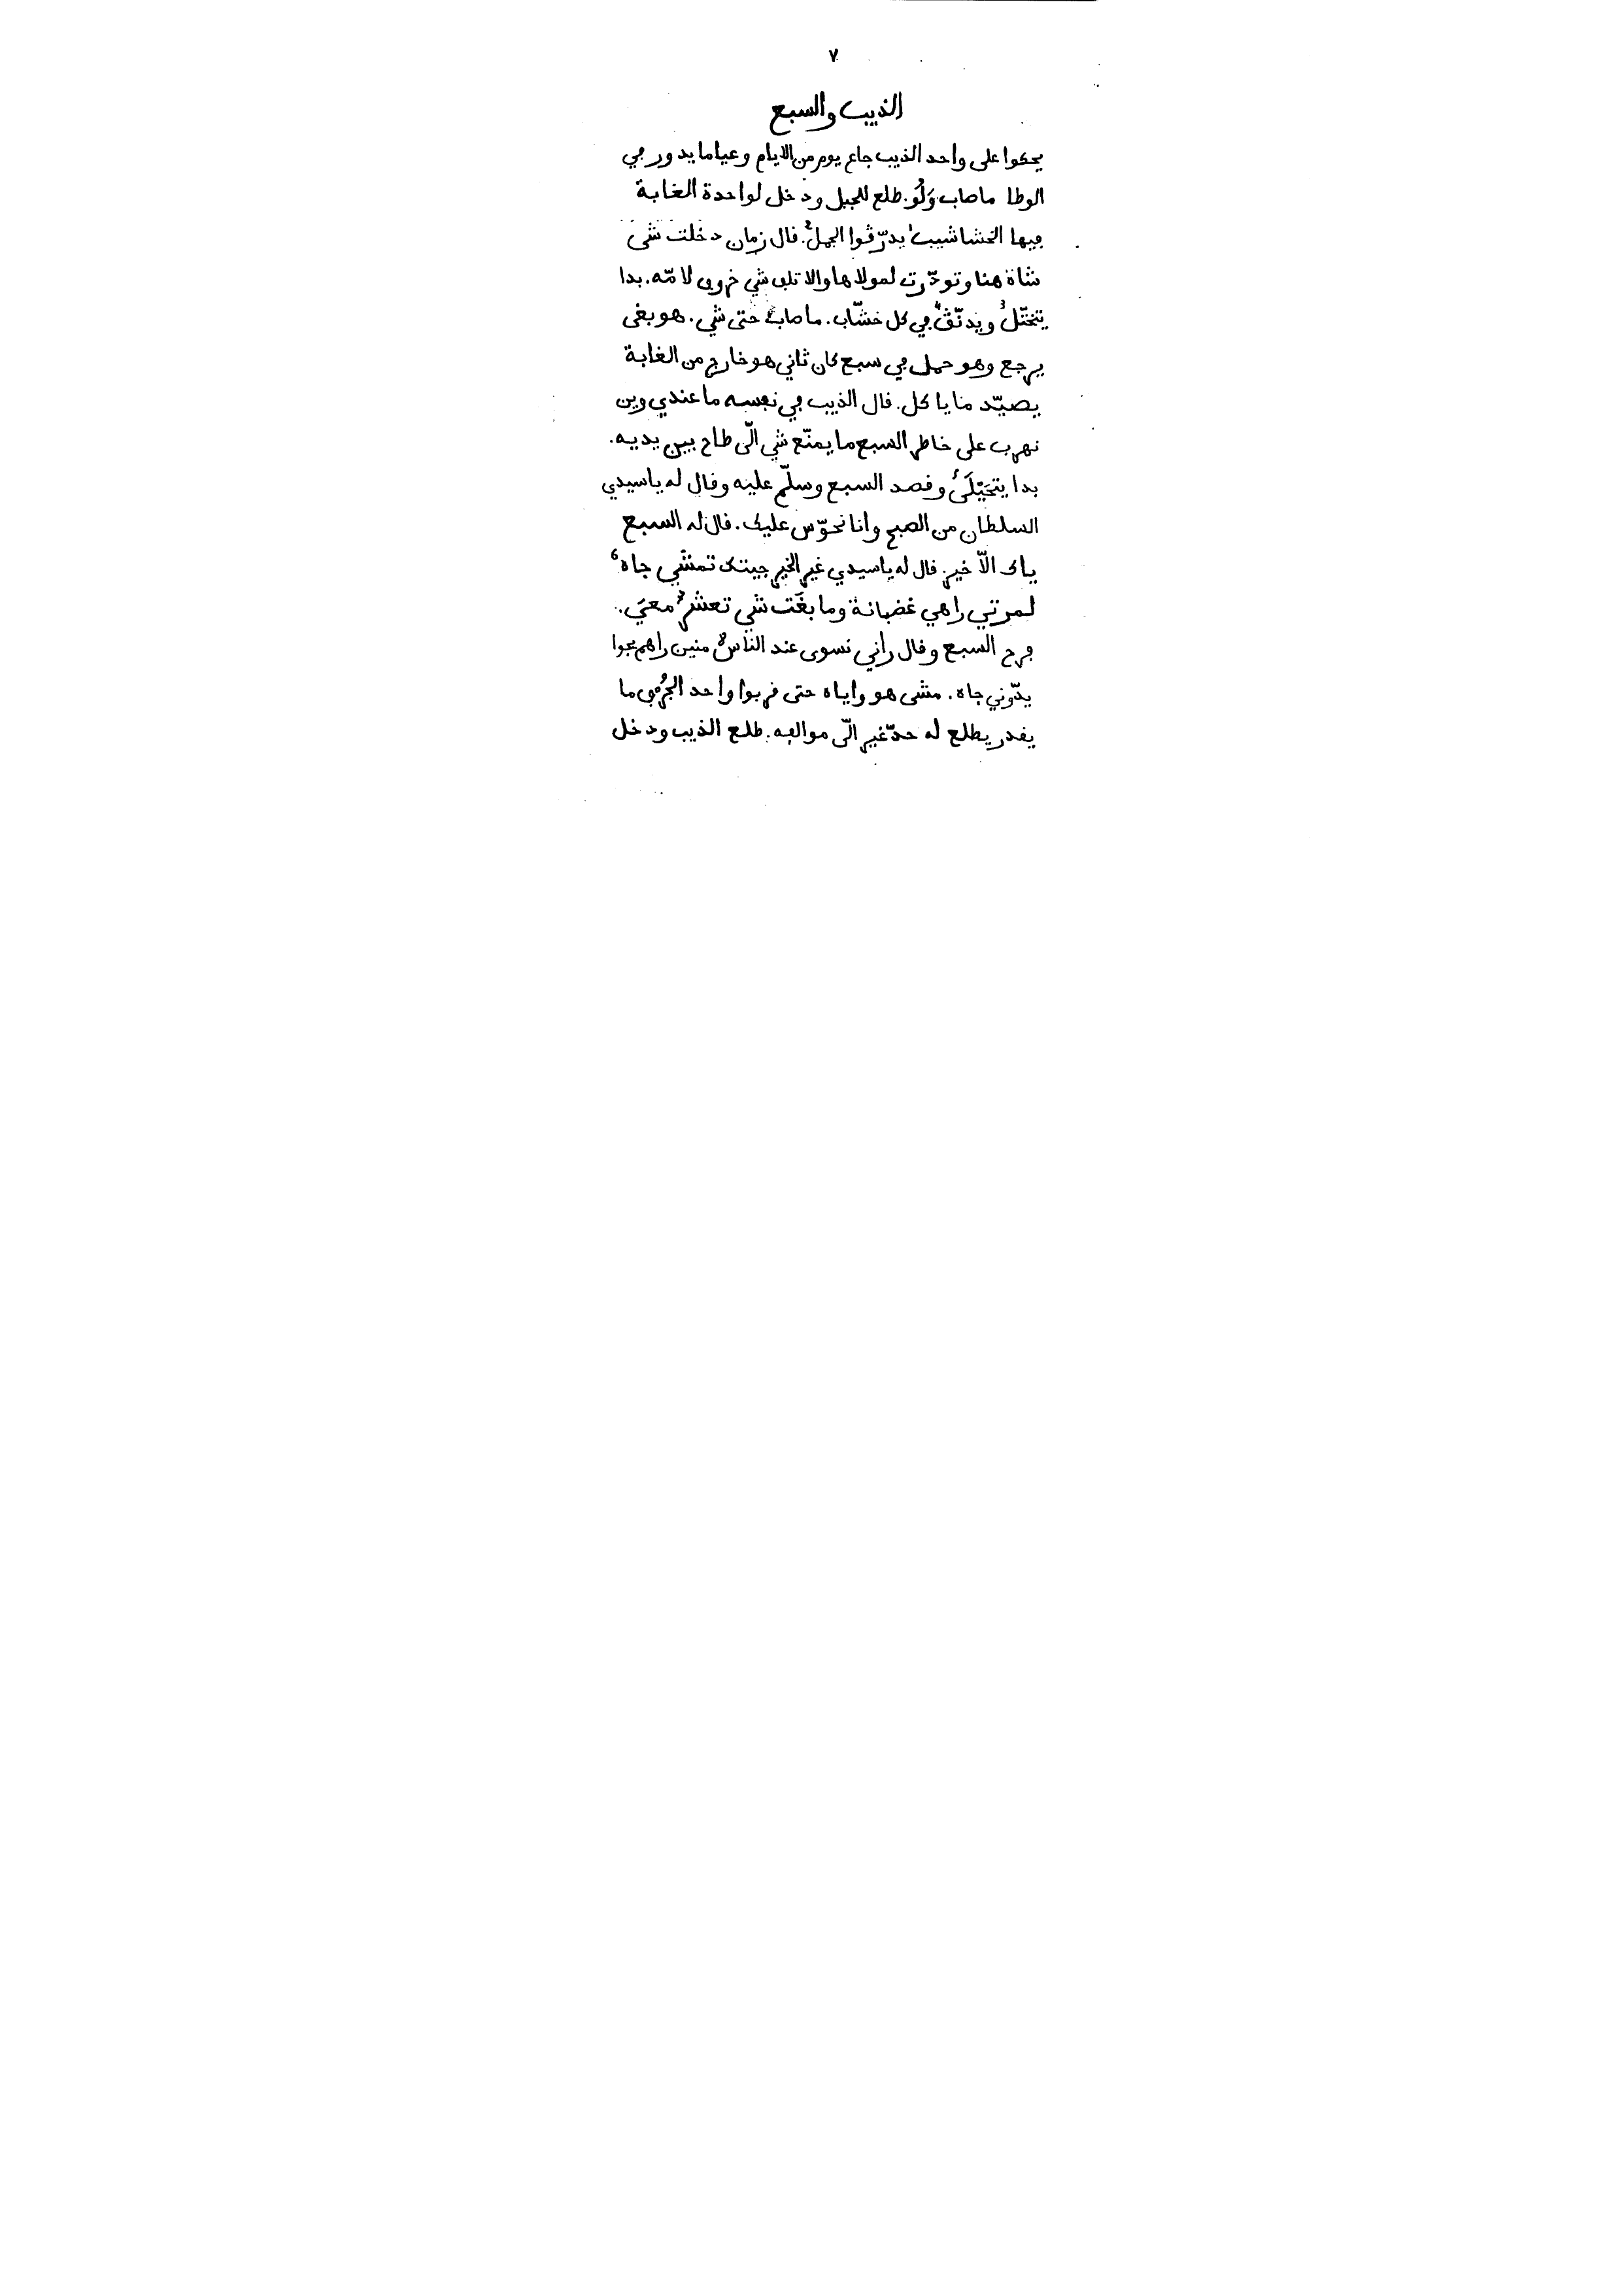 ٧
الذيب والسبع
يحكوا على واحد الذيب جاع يوم من الايام وعيا ما يدور ڢي
الوطا ما صاب وَلُو. طلع للجبل ودخل لواحدة الغابة
ڢيها الخشاشيب¹ يدرّڨوا الجمل². ڧال زمان دخلت شي
شاة هنا وتودّرت لمولاها والا تلڢ شي خروڢ لامّه. بدا
يتختّل³ ويدنّڨ⁴ ڢي كل خشّاب. ما صاب حتى شي. هو بغى
يرجع وهو حمل ڢي سبع كان ثاني هو خارج من الغابة
يصيّد ما ياكل. ڧال الذيب ڢي نڢسه ما عندي وين
نهرب على خاطر السبع ما يمنّع شي الّي طاح بين يديه.
بدا يتحَيْلَى⁵ وڧصد السبع وسلّم عليه وڧال له يا سيدي
السلطان من الصبح وانا نحوّس عليك. ڧال له السبع
ياك الاّ خير. ڧال له يا سيدي غير الخير جيتك تمشّي جاه⁶
لمرتي راهي غضبانة وما بغَت شي تعشر⁷ معي.
ڢرح السبع وڧال راني نسوى عند الناس⁸ منين راهم يجوا
يدّوني جاه. مشى هو واياه حتى ڧربوا واحد الجُرُڢ ما
يڧدر يطلع له حدّ غير الّي موالڢه. طلع الذيب ودخل